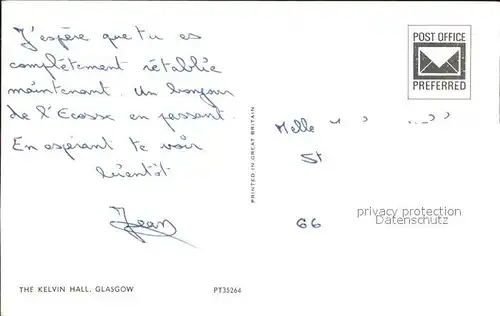 J'espère que tu es
complètement rétablie
maintenant. Un bonjour
de l'Ecosse en passant.
En espérant te voir
bientôt
Jean
POST OFFICE
PREFERRED
Melle
St
66
privacy protection
Datenschutz
PRINTED IN GREAT BRITAIN
THE KELVIN HALL, GLASGOW
PT35264